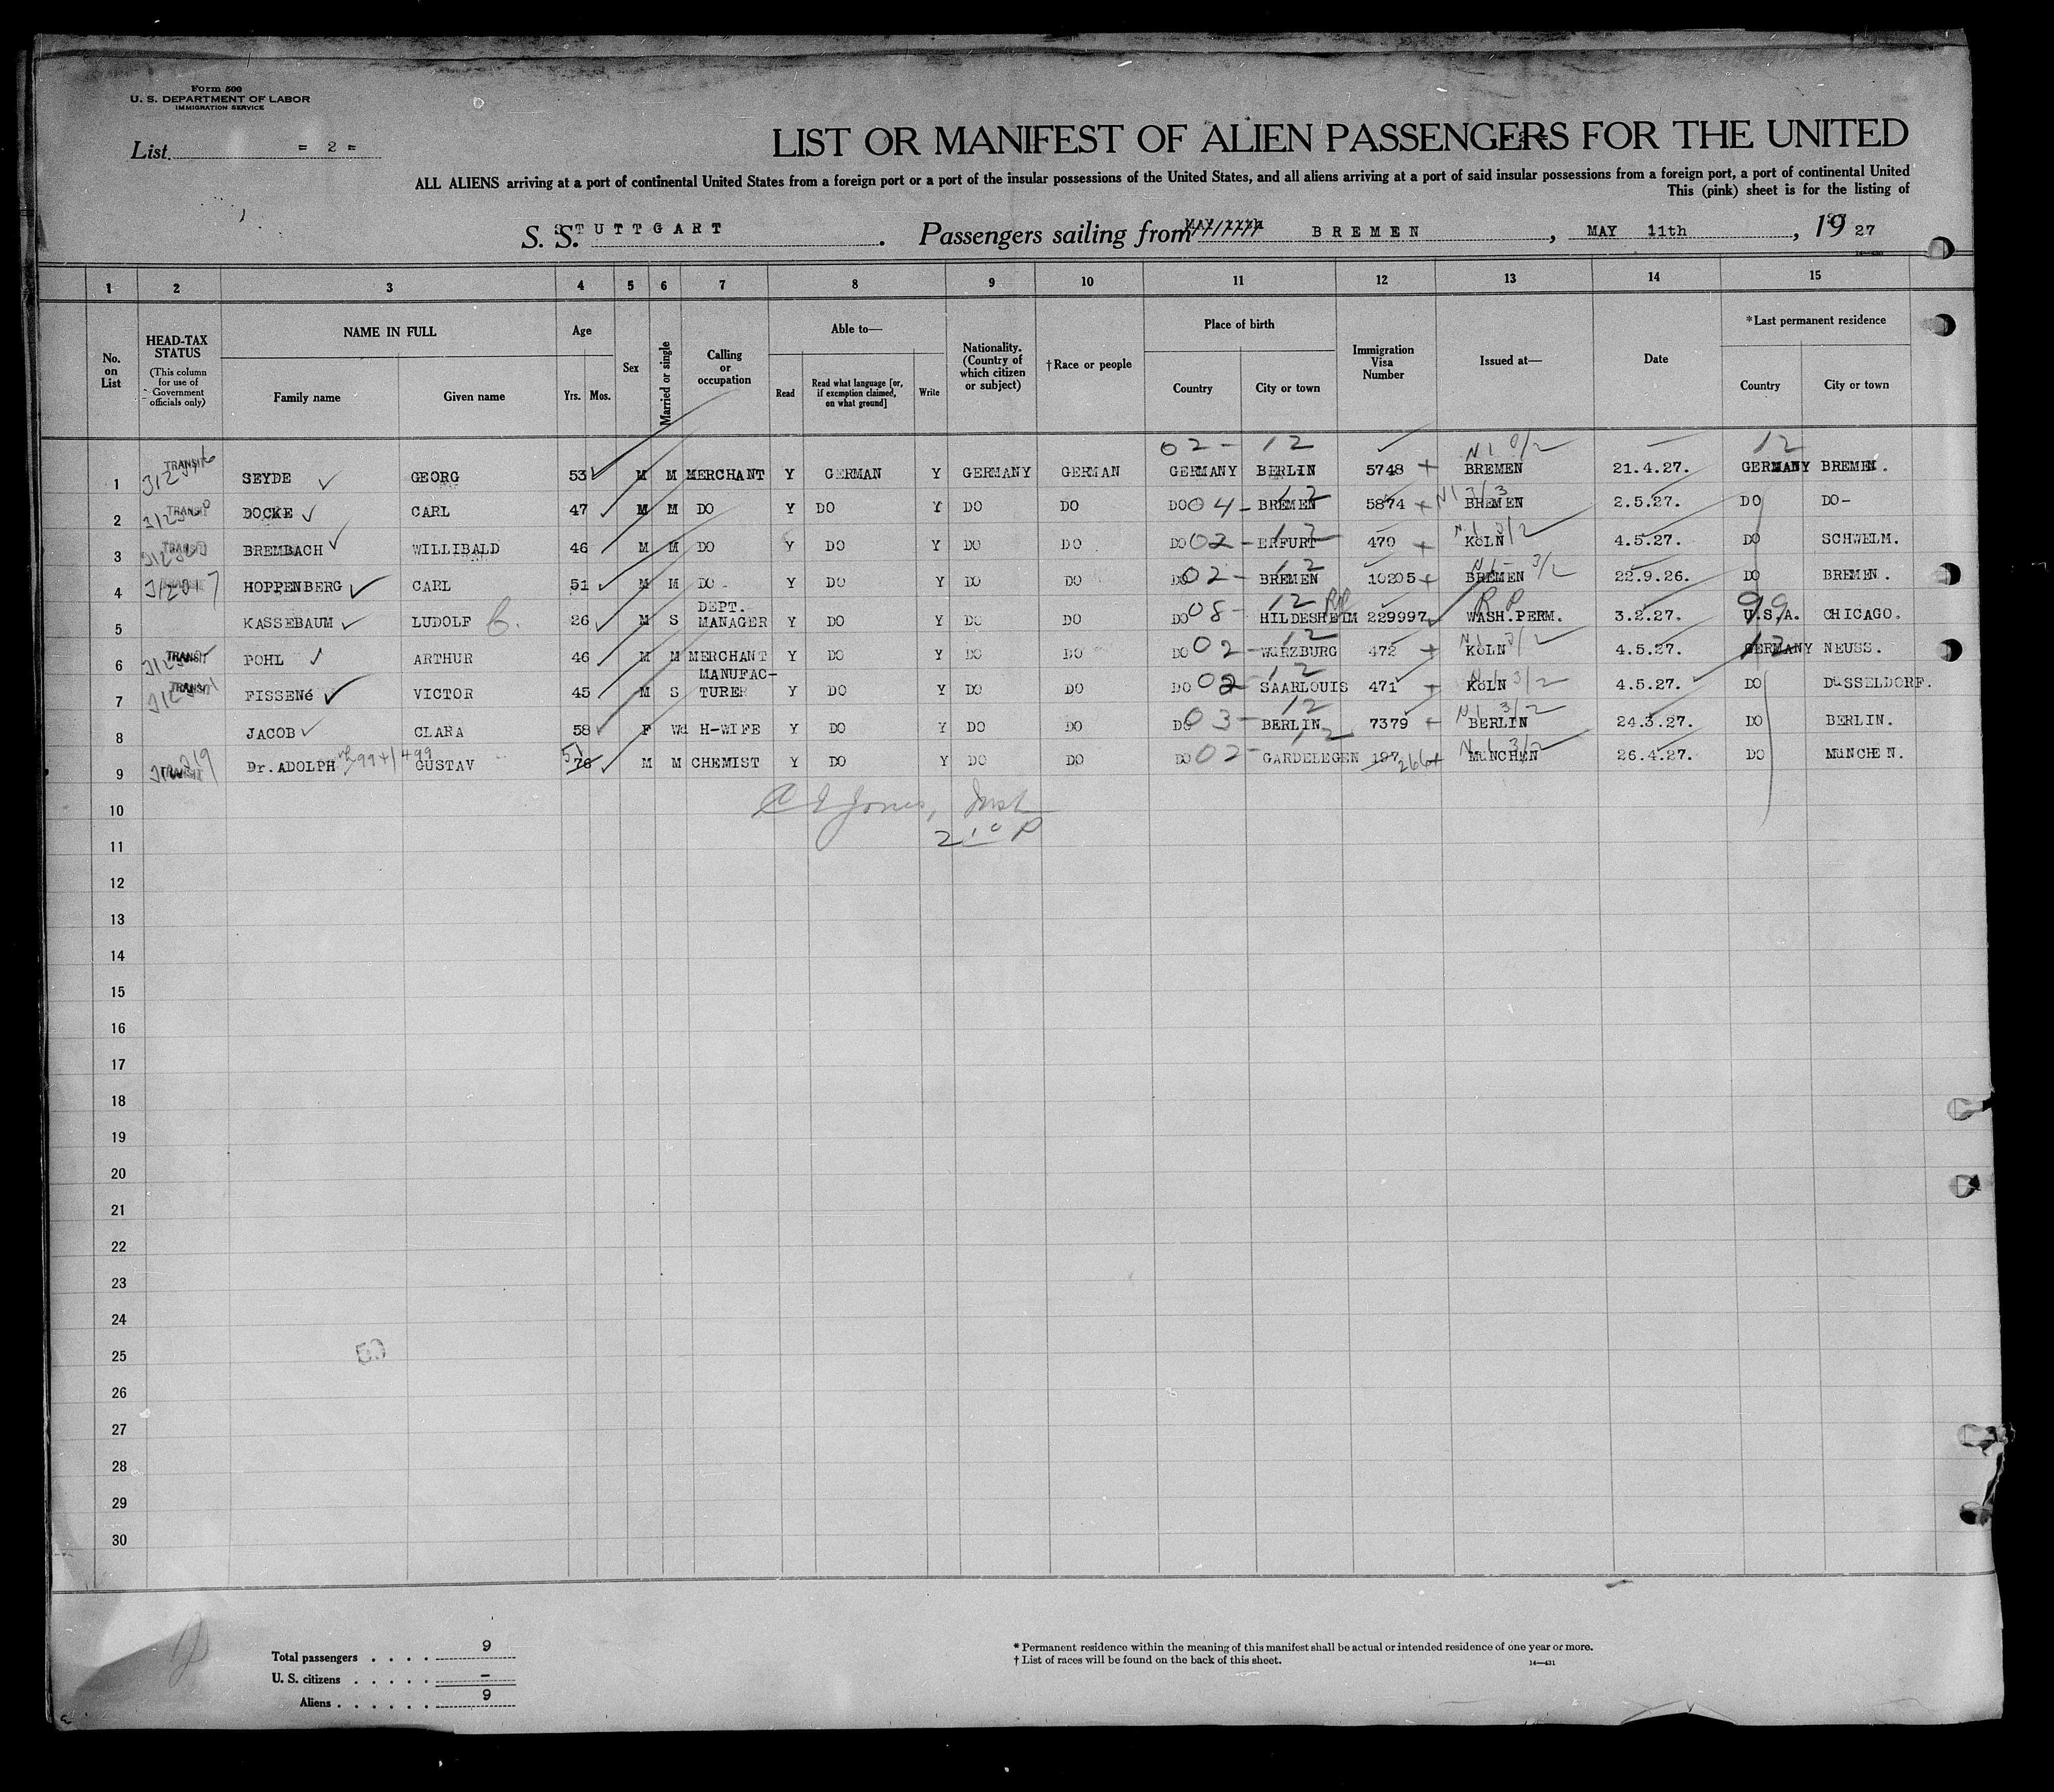 Form 500
U. S. DEPARTMENT OF LABOR
IMMIGRATION SERVICE
List = 2 =
LIST OR MANIFEST OF ALIEN PASSENGERS FOR THE UNITED
ALL ALIENS arriving at a port of continental United States from a foreign port or a port of the insular possessions of the United States, and all aliens arriving at a port of said insular possessions from a foreign port, a port of continental United
This (pink) sheet is for the listing of
S. S. STUTTGART . Passengers sailing from BREMEN , MAY 11th , 19 27
1 2 3 4 5 6 7 8 9 10 11 12 13 14 15
No. on List
HEAD-TAX STATUS (This column for use of Government officials only)
NAME IN FULL
Family name Given name
Age
Yrs. Mos.
Sex
Married or single
Calling or occupation
Able to—
Read Read what language [or, if exemption claimed, on what ground] Write
Nationality. (Country of which citizen or subject)
†Race or people
Place of birth
Country City or town
Immigration Visa Number
Issued at—
Date
*Last permanent residence
Country City or town
02- 12 N1 12
1 TRANSIT SEYDE GEORG 53 M M MERCHANT Y GERMAN Y GERMANY GERMAN GERMANY BERLIN 5748 + BREMEN 21.4.27. GERMANY BREMEN.
2 TRANSIT DOCKE CARL 47 M M DO Y DO Y DO DO DO 04- BREMEN 12 5874 + BREMEN 2.5.27. DO DO-
3 TRANSIT BREMBACH WILLIBALD 46 M M DO Y DO Y DO DO DO 02- ERFURT 12 470 + KöLN 4.5.27. DO SCHWELM.
4 HOPPENBERG CARL 51 M M DO- Y DO Y DO DO DO 02- BREMEN 12 10205 + BREMEN 3/2 22.9.26. DO BREMEN.
5 KASSEBAUM LUDOLF 26 M S DEPT. MANAGER Y DO Y DO DO DO 08- HILDESHEIM 12 229997 WASH.PERM. RP 3.2.27. U.S.A. 99 CHICAGO.
6 TRANSIT POHL ARTHUR 46 M M MERCHANT Y DO Y DO DO DO 02- WüRZBURG 12 472 + KöLN 4.5.27. GERMANY 12 NEUSS.
7 TRANSIT FISSENé VICTOR 45 M S MANUFAC-TURER Y DO Y DO DO DO 02 SAARLOUIS 12 471 KöLN 3/2 4.5.27. DO DüSSELDORF.
8 JACOB CLARA 58 F Wd H-WIFE Y DO Y DO DO DO 03- BERLIN 12 7379 + BERLIN 3/2 24.3.27. DO BERLIN.
9 TRANSIT Dr.ADOLPH GUSTAV 51 76 M M CHEMIST Y DO Y DO DO DO 02- GARDELEGEN 12 197 266+ MüNCHEN 3/2 26.4.27. DO MüNCHEN.
10
11
12
13
14
15
16
17
18
19
20
21
22
23
24
25
26
27
28
29
30
Total passengers . . . . 9
U. S. citizens . . . . . –
Aliens . . . . . . 9
* Permanent residence within the meaning of this manifest shall be actual or intended residence of one year or more.
† List of races will be found on the back of this sheet.
14—431